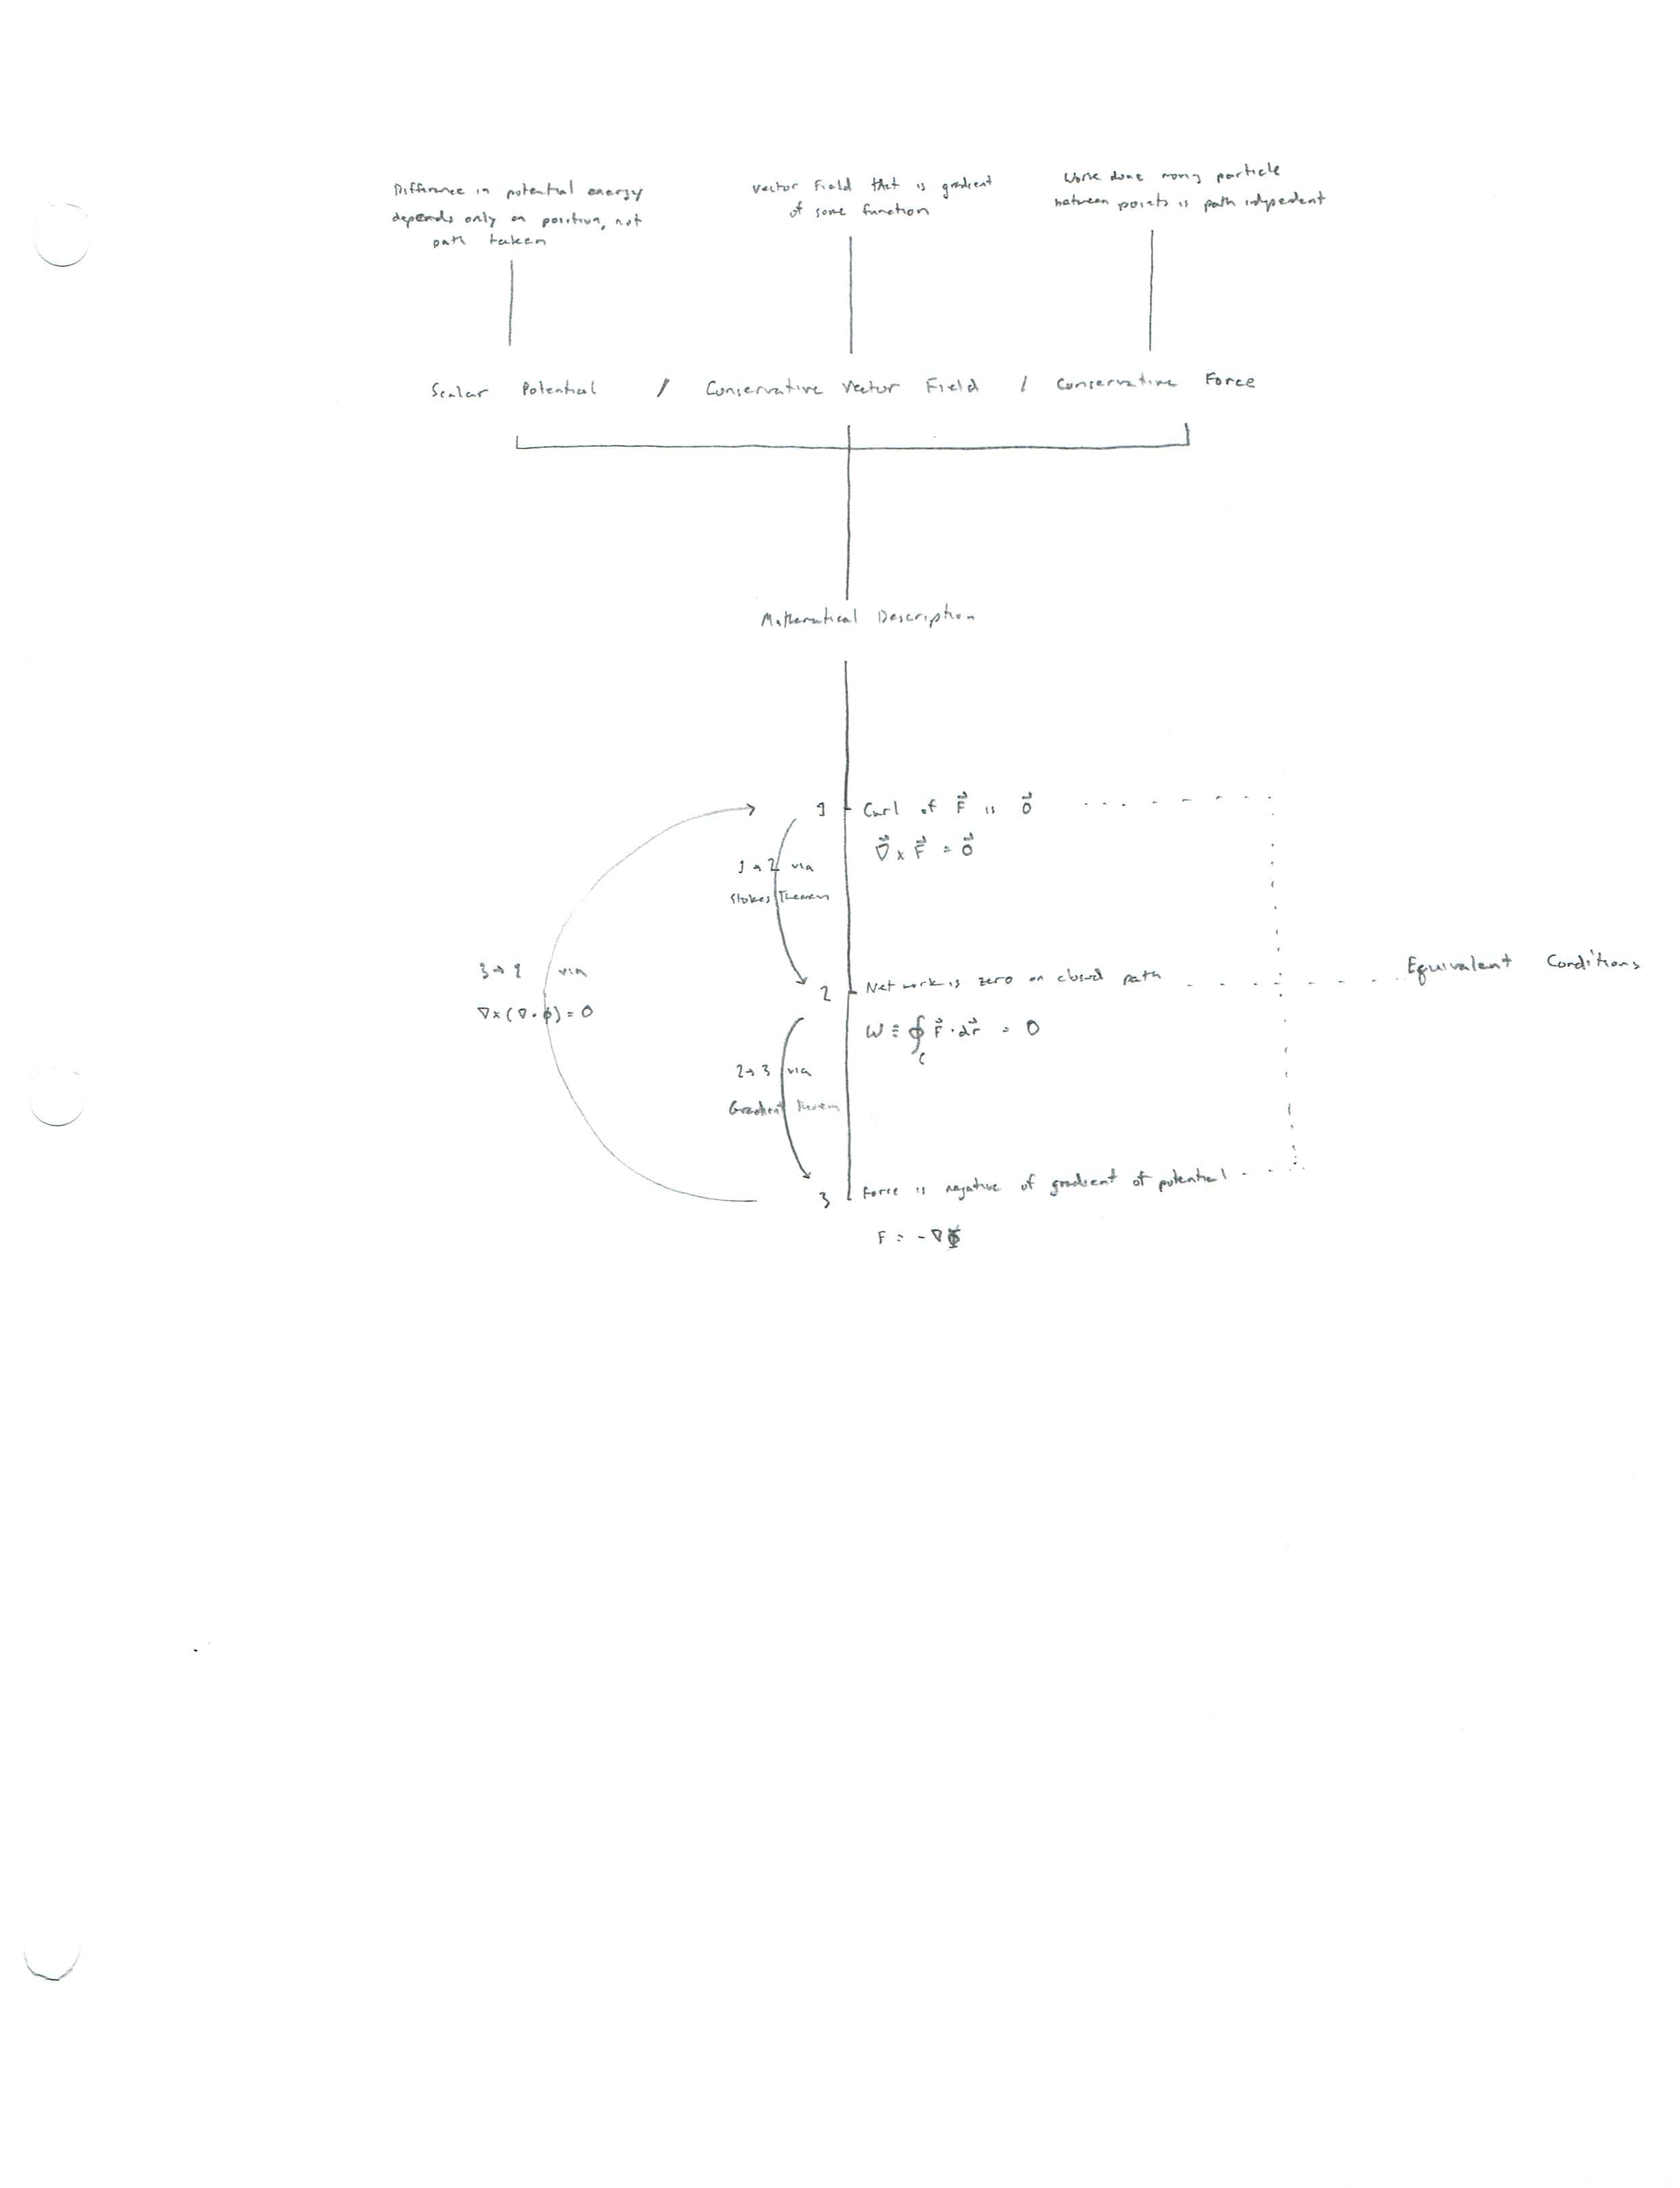 Difference in potential energy
depends only on position, not
path taken
Vector Field that is gradient
of some function
Work done moving particle
between points is path indpendent
Scalar Potential / Conservative Vector Field / Conservative Force
Mathematical Description
1 Curl of F⃗ is 0⃗
∇⃗ × F⃗ = 0⃗
1 → 2 via
Stokes Theorem
2 Net work is zero on closed path
W ≡ ∮_C F⃗ · dr⃗ = 0
Equivalent Conditions
3 → 1 via
∇×(∇·ϕ) = 0
2 → 3 via
Gradient Theorem
3 Force is negative of gradient of potential
F = -∇Φ